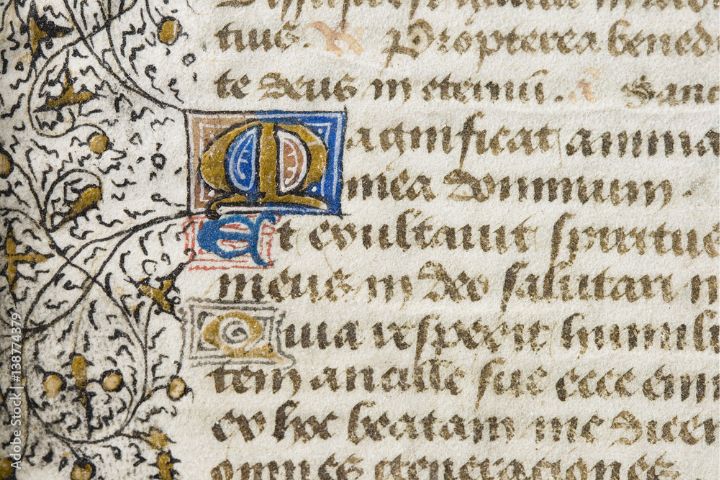 tius. Propterea bened
te deus in eternū. ā Sanc
Magnificat anima
mea dominum
Et exultavit spiritus
meus in deo salutari
Quia respexit humili
tem ancille sue ecce enim
ex hoc beatam me dicen
omnes generaciones
Adobe Stock | 138774379